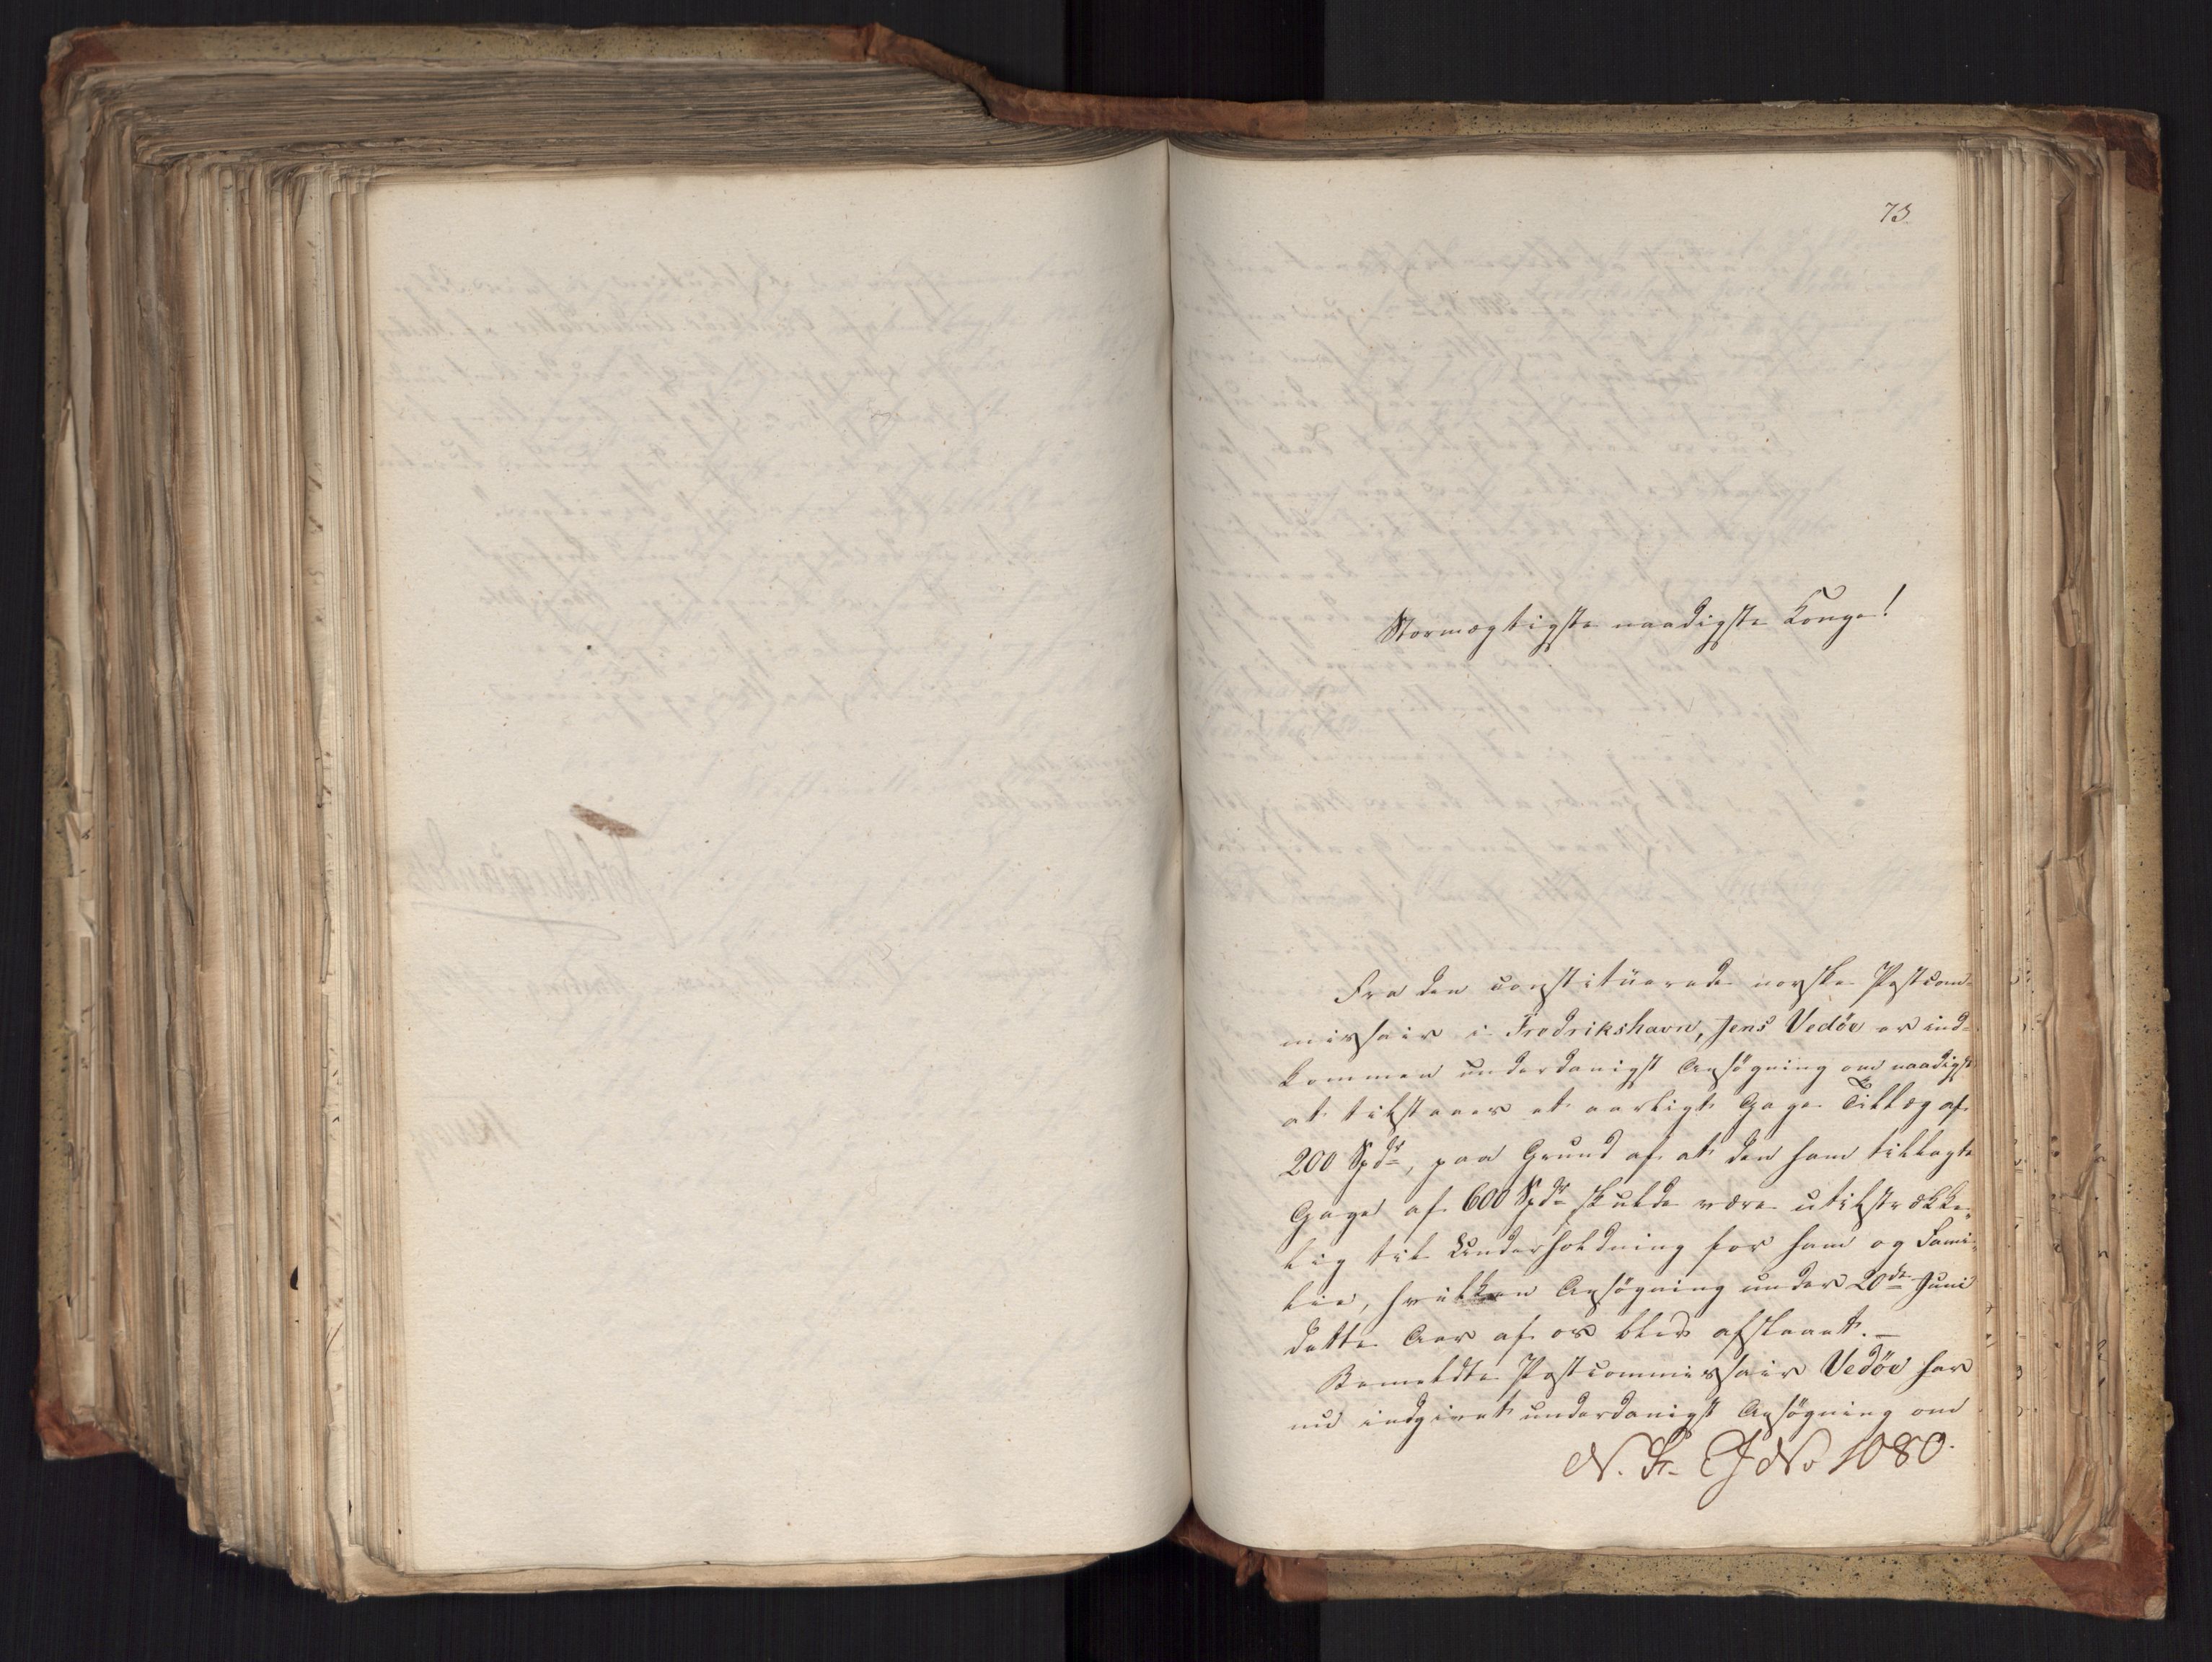 73.
Stormægtigste naadigste Konge!
Fra den constituerede norske Postcom-
missair i Fredrikshavn, Jens Vedöe er ind-
kommen underdanigst Ansögning om naadigst
at tilstaaes et aarligt Gage Tillæg af
200 Spdr, paa Grund af at den ham tillagte
Gage af 600 Spdr skulde være utilstrække-
lig til Underholdning for ham og Fami-
lie, hvilken Ansögning under 20de Juni
dette Aar af os blev afslaaet. —
Bemeldte Postcommissair Vedöe har
nu indgivet underdanigst Ansögning om
N. F. J No 1080.